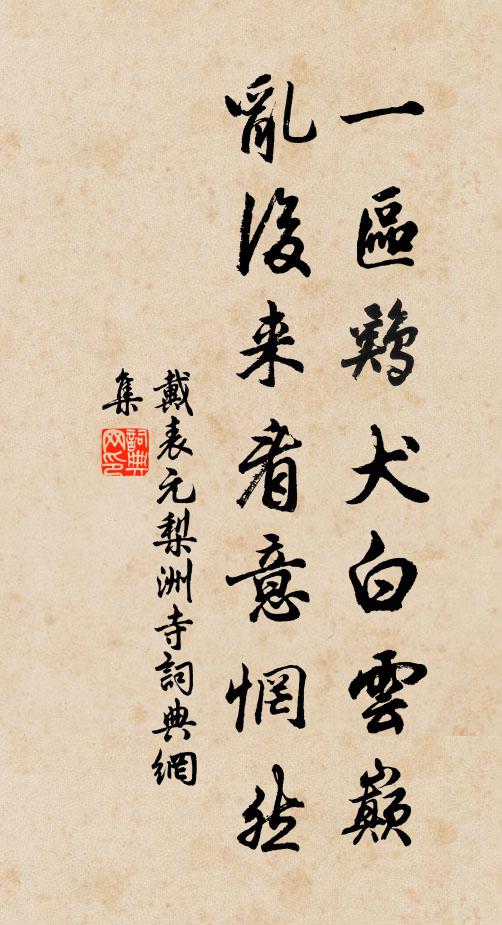 一區鷄犬白雲巔
亂後来者意惘然
戴表元梨洲寺詞典網
集
詞典
网印